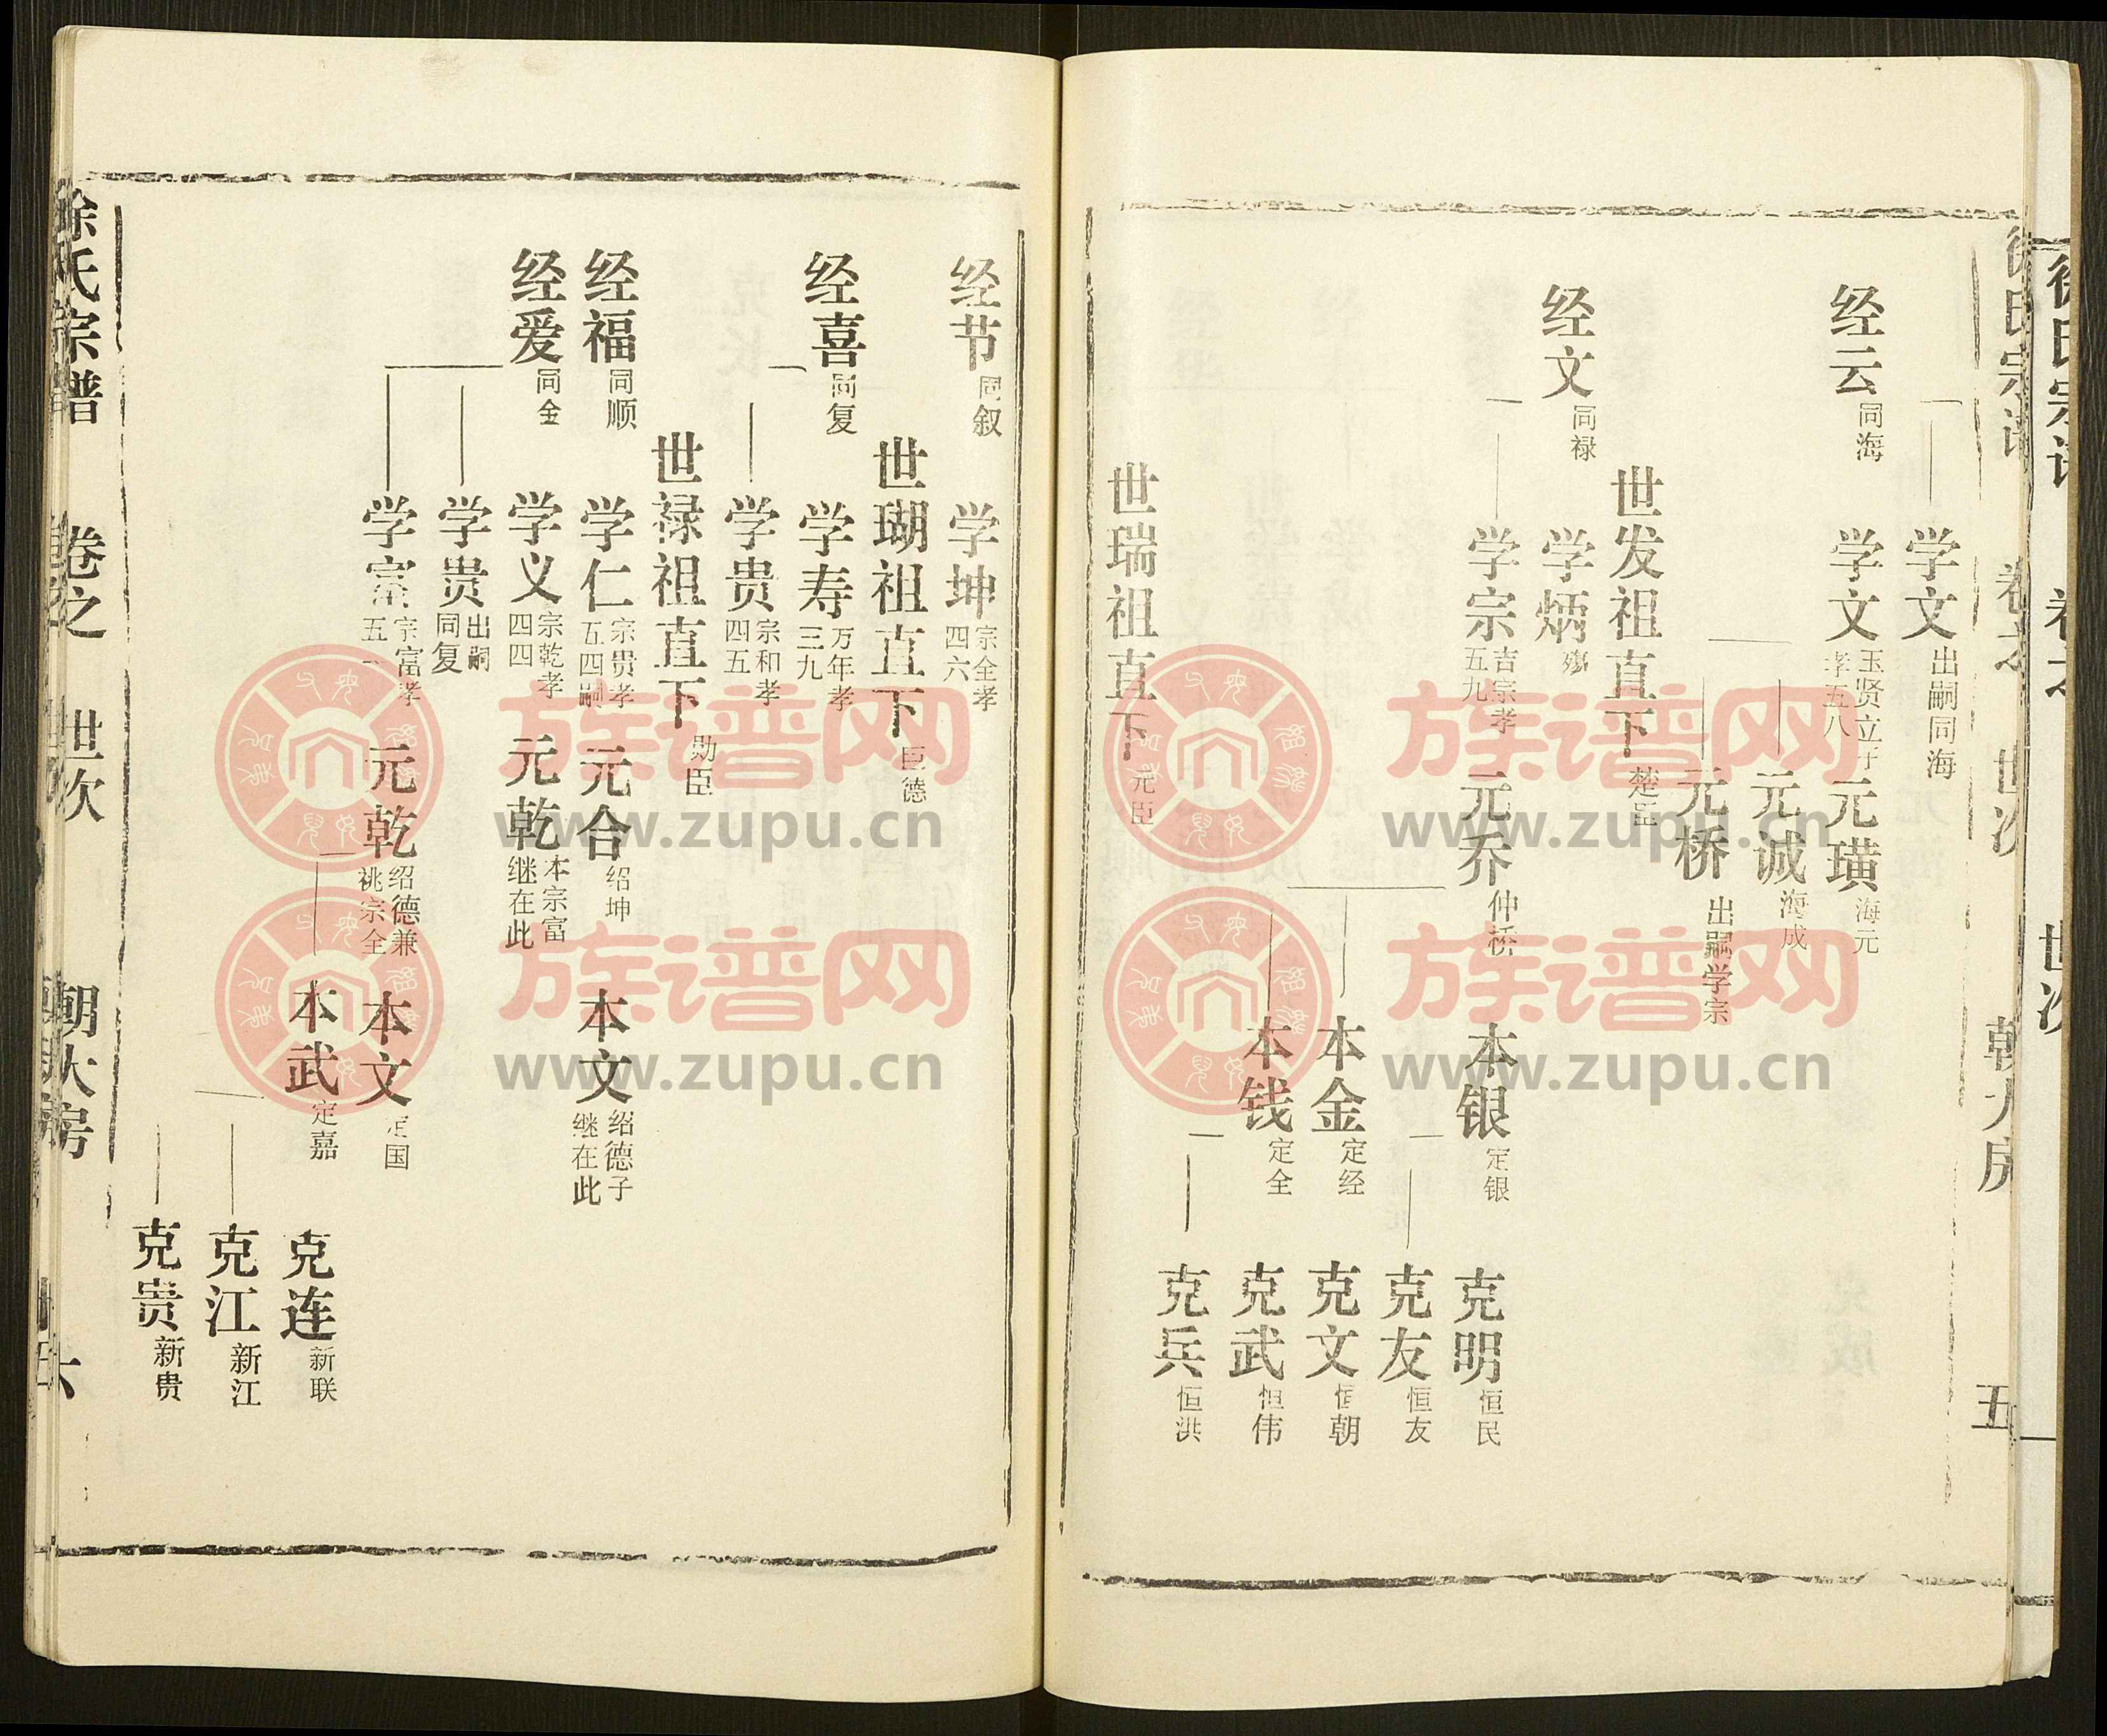 徐氏宗谱 卷之 世次
徐氏宗谱 卷之 世次 朝大房 五
学文 出嗣同海
经云 同海 学文 玉贤立子孝五八 元璜 海元
元诚 海成
元桥 出嗣学宗
世发祖直下 楚臣
经文 同禄 学炳 殇
学宗 吉宗孝五九 元乔 仲桥 本银 定银 克明 恒民
克友 恒友
本金 定经 克文 恒朝
本钱 定全 克武 恒伟
克兵 恒洪
世瑞祖直下 元臣
经节 同叙 学坤 宗全孝四六
世瑚祖直下 臣德
经喜 同复 学寿 万年孝三九
学贵 宗和孝四五
世禄祖直下 勋臣
经福 同顺 学仁 宗贵孝五四嗣 元合 绍坤 本文 绍德子继在此
经爱 同金 学义 宗乾孝四四 元乾 本宗富继在此
学贵 出嗣同复
学富 宗富孝五一 元乾 绍德兼祧宗全 本文 定国
本武 定嘉 克连 新联
克江 新江
克贵 新贵
徐氏宗谱 卷之 世次 朝大房 六
族谱网
www.zupu.cn
族谱网
www.zupu.cn
族谱网
www.zupu.cn
族谱网
www.zupu.cn